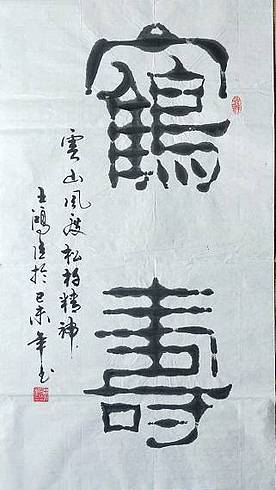 鶴壽
雲山風度松柏精神
王鴻於己未年书